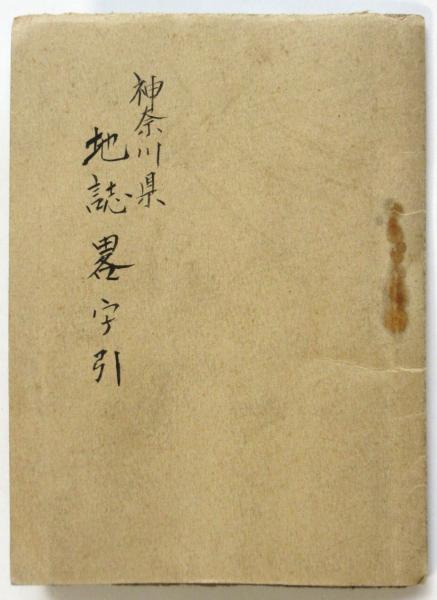 神奈川県
地誌畧字引